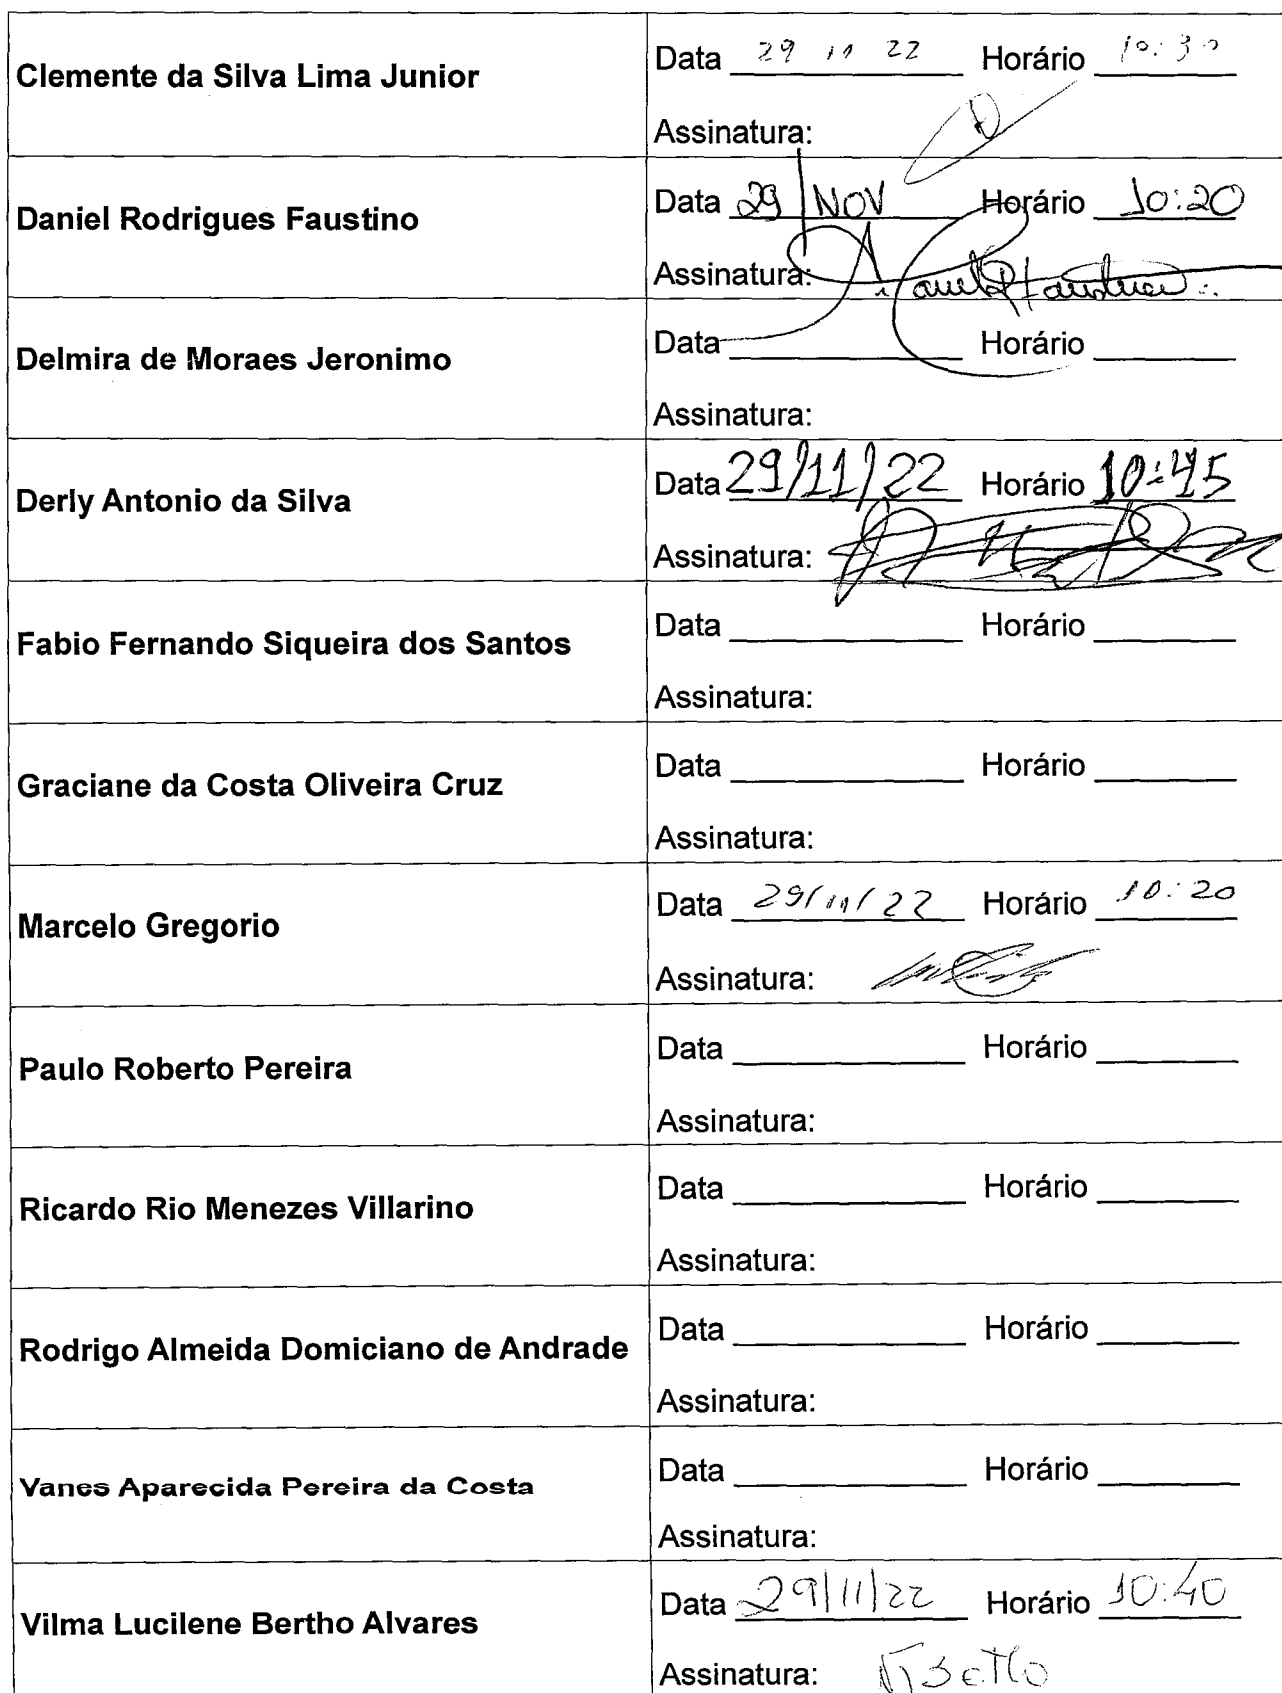 Clemente da Silva Lima Junior
Data 29 11 22 Horário 10:30
Assinatura:
Daniel Rodrigues Faustino
Data 29/NOV Horário 10:20
Assinatura:
Delmira de Moraes Jeronimo
Data Horário
Assinatura:
Derly Antonio da Silva
Data 29/11/22 Horário 10:45
Assinatura:
Fabio Fernando Siqueira dos Santos
Data Horário
Assinatura:
Graciane da Costa Oliveira Cruz
Data Horário
Assinatura:
Marcelo Gregorio
Data 29/11/22 Horário 10:20
Assinatura:
Paulo Roberto Pereira
Data Horário
Assinatura:
Ricardo Rio Menezes Villarino
Data Horário
Assinatura:
Rodrigo Almeida Domiciano de Andrade
Data Horário
Assinatura:
Vanes Aparecida Pereira da Costa
Data Horário
Assinatura:
Vilma Lucilene Bertho Alvares
Data 29/11/22 Horário 10:40
Assinatura: